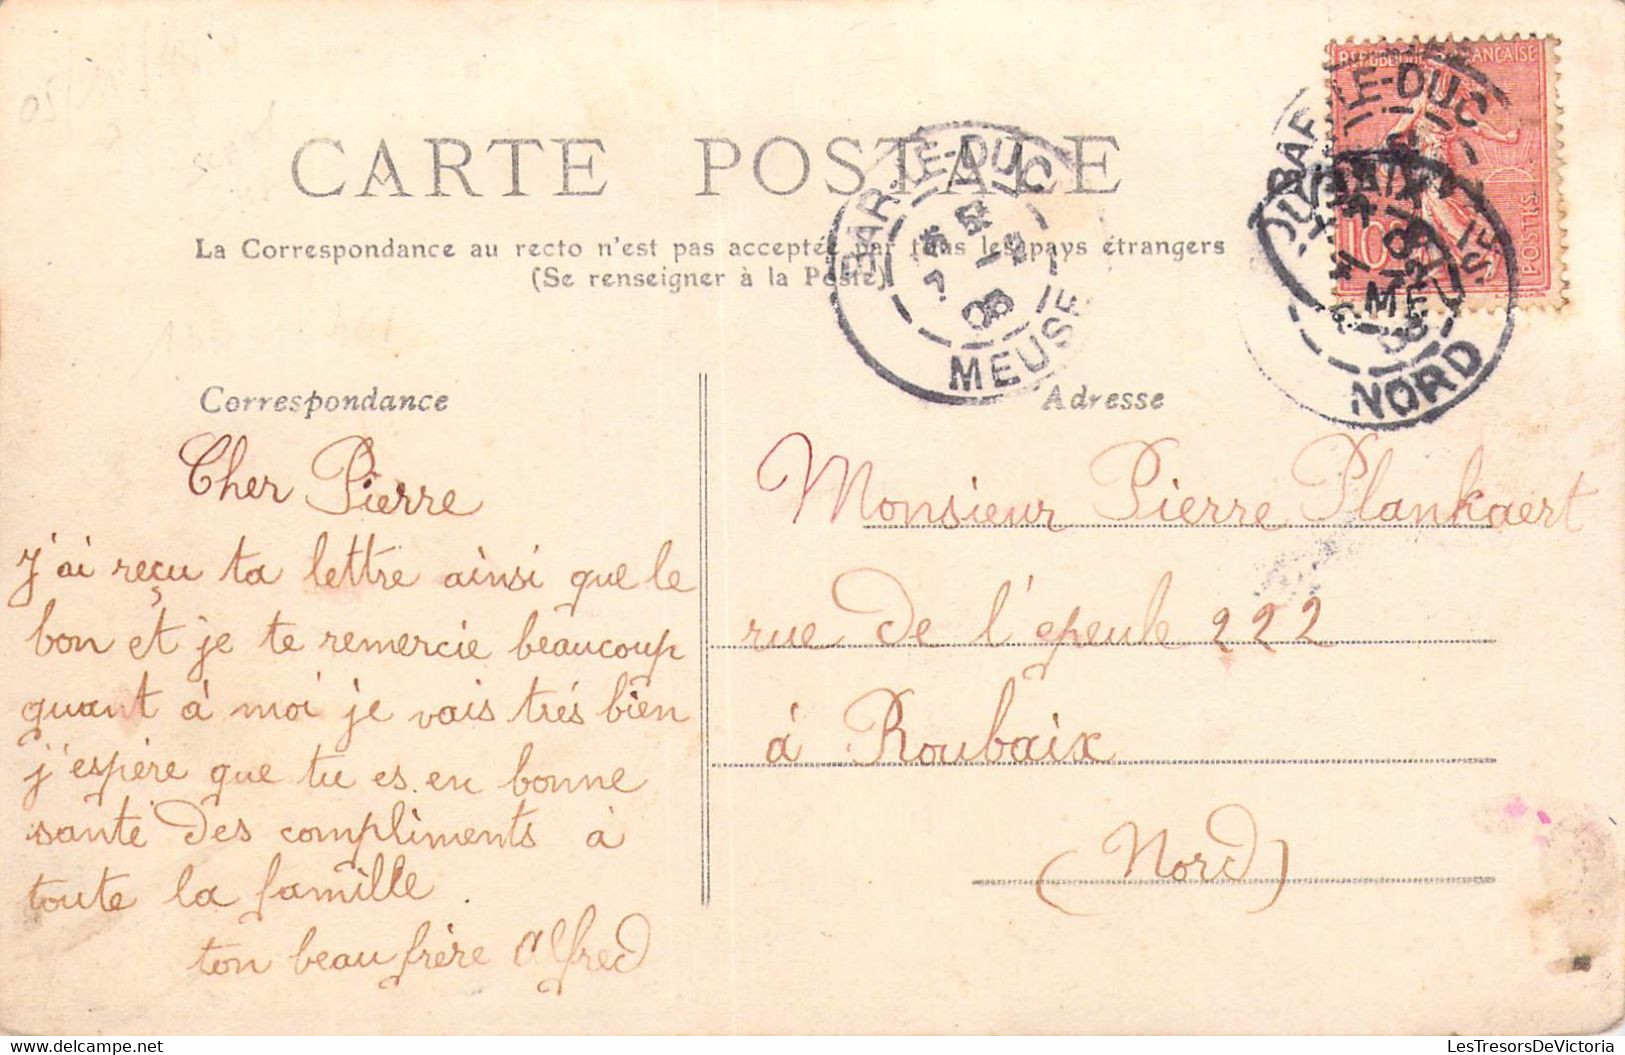 CARTE POSTALE
La Correspondance au recto n'est pas acceptée par tous les pays étrangers
(Se renseigner à la Poste)
BAR-LE-DUC
08
MEUSE
RÉPUBLIQUE FRANÇAISE
10
POSTES
BAR-LE-DUC
NORD
Correspondance
Cher Pierre
J'ai reçu ta lettre ainsi que le
bon et je te remercie beaucoup
quant à moi je vais trés bien
j'espère que tu es en bonne
santé des compliments à
toute la famille.
ton beau frère Alfred
Adresse
Monsieur Pierre Plankaert
rue de l'épeule 222
à Roubaix
(Nord)
LesTresorsDeVictoria